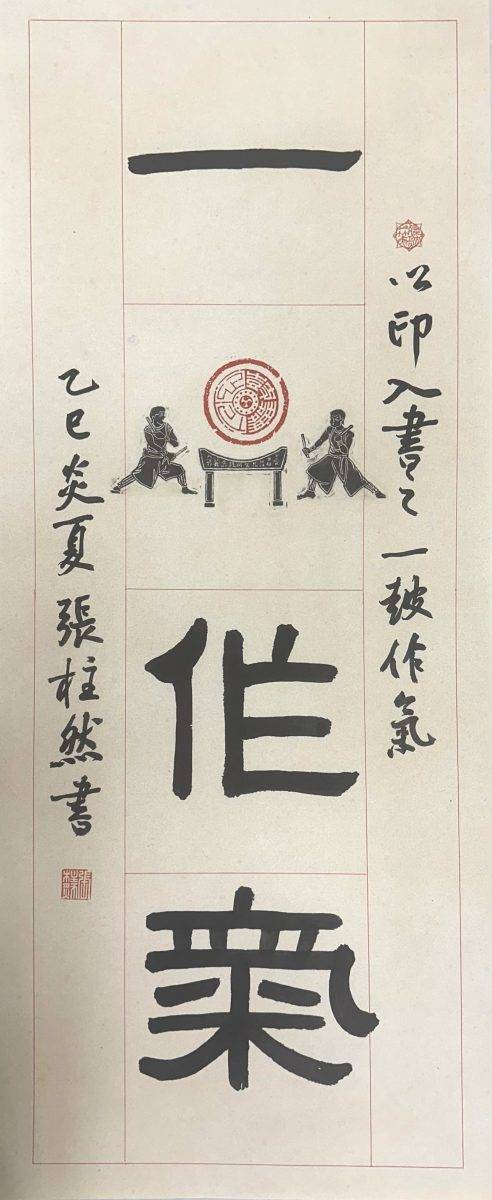 以印入書之一皷作氣
一
作
氣
乙巳炎夏張柱然書